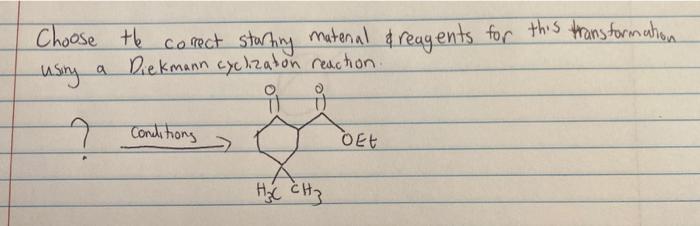 Choose the correct starting material & reagents for this transformation
using a Diekmann cyclization reaction.
O O
? Conditions
OEt
H3C CH3